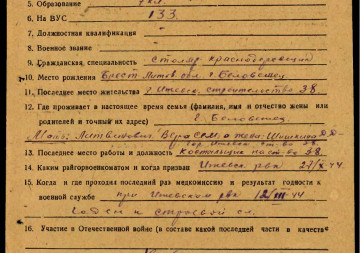 5. Образование 7 кл.
6. На ВУС 133.
7. Должностная квалификация -
8. Военное знание -
9. Гражданская, специальность Столяр краснодеревщик
10. Место рождения Брест Литов. обл. г. Беловежец
11. Последнее место жительства г. Ижевск, строительство 38.
12. Где проживает в настоящее время семья (фамилия, имя и отчество жены или
родителей и точный их адрес) г. Беловежец.
Мать: Литвинович Вера Сем. жена:
13. Последнее место работы и должность 38.
14. Каким райгорвоенкоматом и когда призван Ижевск рвк 27/X-44
15. Когда и где проходил последний раз медкомиссию и результат годности к
военной службе при Ижевском рвк 12/III-44
Годен к строевой сл.
16. Участие в Отечественной войне (в составе какой последней части и в качестве